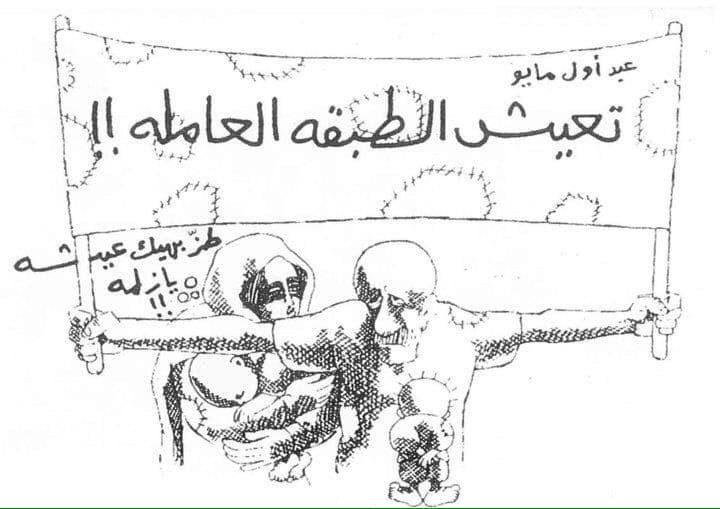 عيد أول مايو
تعيش الطبقه العامله !!
طزّ بهيك عيشه
يا زلمه !!